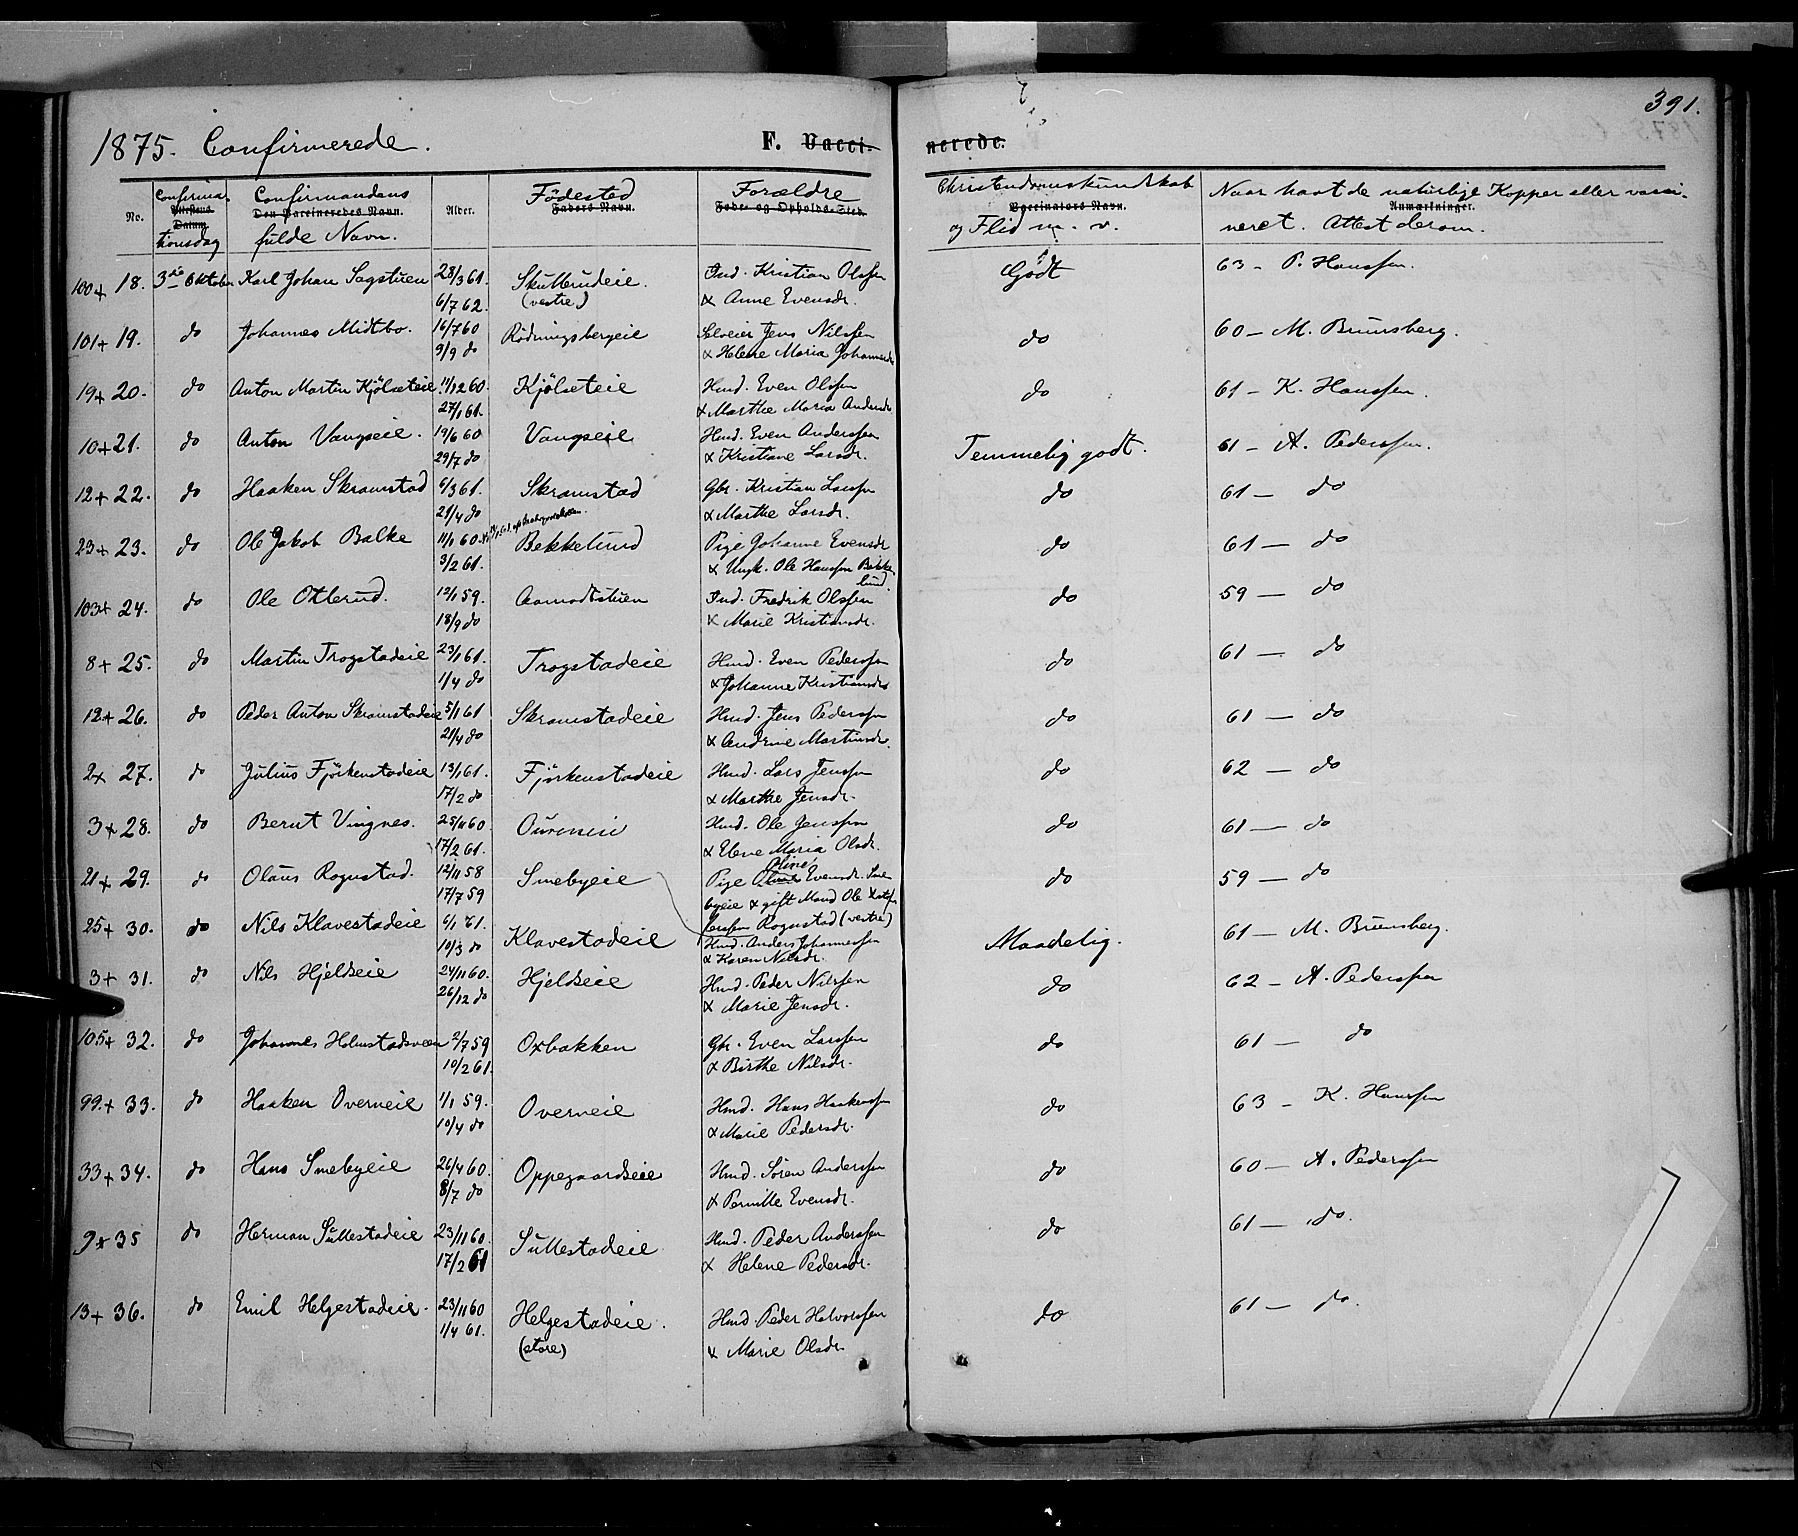 391.
1875. Confirmerede. F. Vaccinerede.
No. Confirmationsdag Attestens Datum
Confirmandens fulde Navn. Den Vaccineredes Navn.
Alder.
Fødested Faders Navn.
Forældre Føde- og Opholds-Sted.
Christendomskundskab og Flid m. v. Vaccinators Navn.
Naar havt de naturlige Kopper eller vaccineret. Attest derom. Anmærkninger.
100+ 18. 3die Oktober Karl Johan Sagstuen 28/3 61. Skutterudeie. Ind. Kristian Olssen Godt 63 - P. Hanssen.
6/7 62. (vestre) & Anne Evensdr.
101+ 19. do Johannes Midtbo. 16/7 60 Rödningsbergeie Selveier Jens Nilssen do 60 - M. Brunsberg.
9/9 do & Helene Maria Johannesdr
19+ 20. do Anton Martin Kjölseteie 11/12 60. Kjölseteie Hmd. Even Olssen do 61 - K. Hanssen.
27/1 61. & Marthe Maria Andersdr
10+ 21. do Anton Vangseie. 19/6 60 Vangseie Hmd. Even Anderssen Temmelig godt. 61 - A. Pederssen.
29/7 do & Kristiane Larsdr.
12+ 22. do Haaken Skramstad 6/3 61. Skramstad Gbr. Kristian Larssen do 61 - do
21/4 do & Marthe Larsdr.
23+ 23. do Ole Jakob Balke 11/1 60. Bekkelund Pige Johanne Evensdr do 61 - do
3/2 61. & Ungk. Ole Hanssen Bekkelund
103+ 24. do Ole Otterud. 12/1 59. Aamodtstuen Ind. Fredrik Olssen do 59 - do
18/9 do & Marie Kristiansdr.
8+ 25. do Martin Trogstadeie 23/1 61. Trogstadeie Hmd. Even Pederssen do 61 - do
1/4 do & Johanne Kristiansdr
12+ 26. do Peder Anton Skramstadeie 5/1 61 Skramstadeie Hmd. Jens Pederssen do 61 - do
21/4 do & Andrine Martinsdr.
2+ 27. do Julius Fjörkenstadeie 13/1 61. Fjörkenstadeie Hmd. Lars Jenssen do 62 - do
17/2 do & Marthe Jensdr.
3+ 28. do Bernt Vingnes. 25/11 60. Hmd. Ole Jenssen do 61 - do
17/2 61. & Elene Maria Olsdr.
21+ 29. do Olaus Rognstad. 12/11 58 Smebyeie Pige Oline Evensdr. Sme- do 59 - do
17/7 59 byeie & gift Mand Ole
Larssen Rognstad (vestre)
25+ 30. do Nils Klavestadeie 6/1 61. Klavestadeie Hmd. Anders Johannessen Maadelig. 61 - M. Brunsberg.
10/3 do & Karen Nilsdr.
3+ 31. do Nils Hjeldseie 24/11 60. Hjeldseie Hmd. Peder Nilssen do 62 - A. Pederssen
26/12 do & Marie Jensdr.
105+ 32. do Johannes Holmstadsveen 2/7 59 Oxbakken Gbr. Even Larssen do 61 - do
10/2 61. & Birthe Nilsdr.
99.+ 33. do Haaken Overneie 1/1 59. Overneie Hmd. Hans Haakenssen do 63 - K. Hanssen
10/4 do & Marie Pedersdr.
33+ 34. do Hans Smebyeie 26/4 60. Oppegaardseie Hmd. Sören Anderssen do 60 - A. Pederssen
8/7 do & Pernille Evensdr.
9+ 35 do Herman Sullestadeie 23/11 60. Sullestadeie Hmd. Peder Anderssen do 61 - do.
17/2 61 & Helene Pedersdr.
13+ 36. do Emil Helgestadeie. 23/11 60 Helgestadeie. Hmd. Peder Halvorssen do 61 - do.
1/4 61. (store) & Marie Olsdr